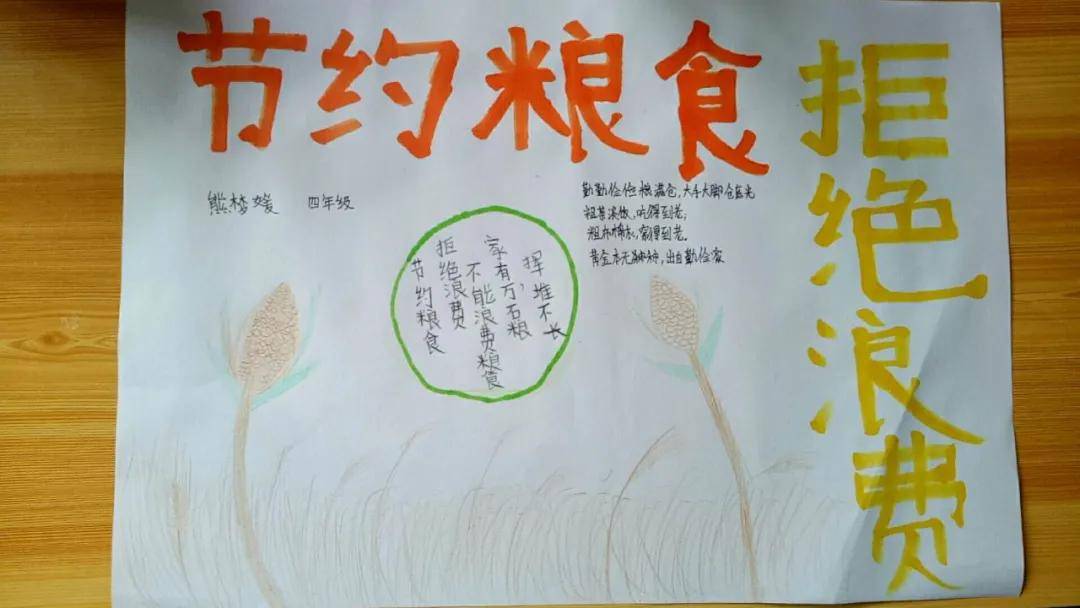 节约粮食
拒绝浪费
熊梦媛 四年级
勤勤俭俭粮满仓,大手大脚仓底光
粗茶淡饭,吃得到老;
粗布棉衣,得到老.
黄金本无种,出自勤俭家
节约粮食
拒绝浪费
不能浪费粮食
家有万,石粮
挥堆不长